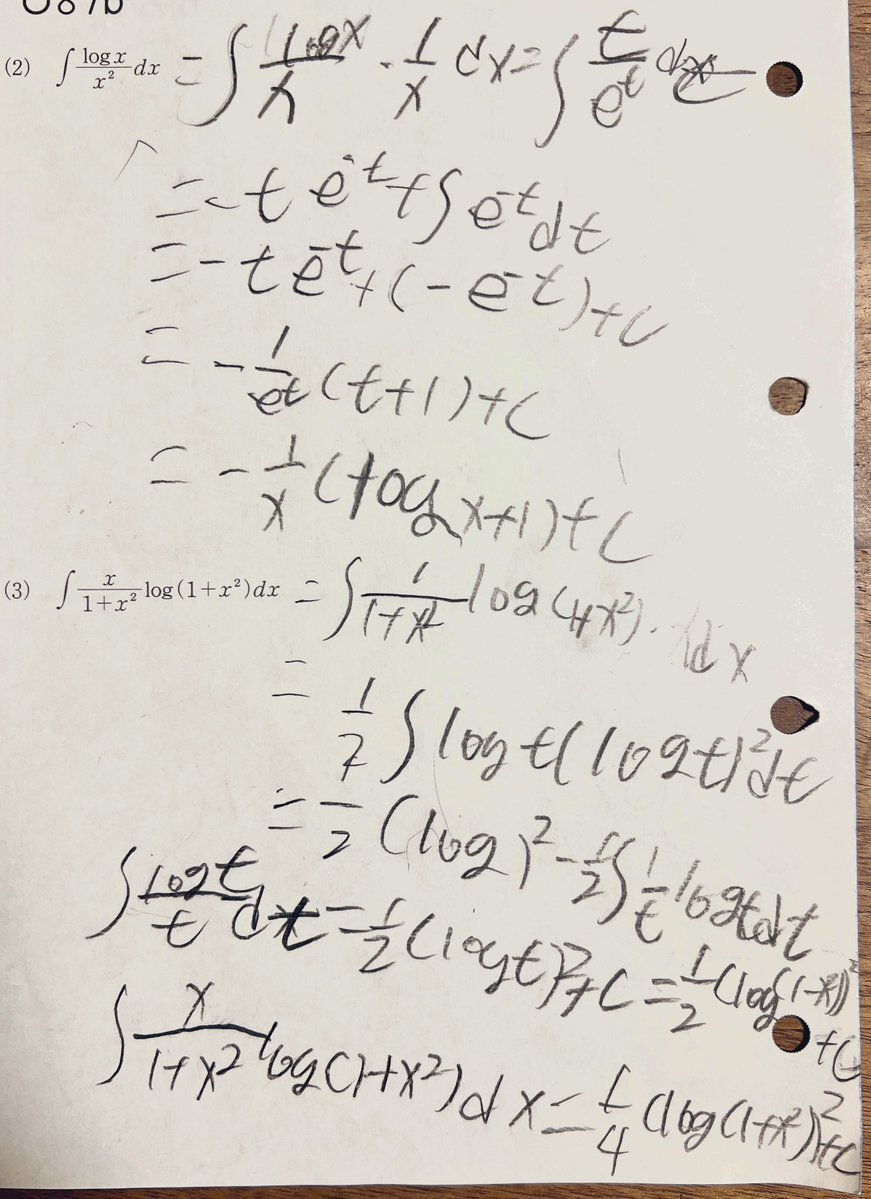 (2) ∫ log x / x² dx = ∫ log x / x · 1/x dx = ∫ t / e^t
= -t e^-t + ∫ e^-t dt
= -t e^-t + (-e^-t) + C
= -1/e^t (t+1) + C
= -1/x (log x+1) + C
(3) ∫ x / 1+x² log(1+x²)dx = ∫ 1 / 1+x² log(1+x²) · dx
=
1/2 ∫ log t (log t)² dt
= 1/2 (log)² - 1/2 ∫ 1/t log t dt
∫ log t / t dt = 1/2 (log t)² + C = 1/2 (log(1-x²))² + C
∫ x / 1+x² log(1+x²) dx = 1/4 (log(1+x²))² + C